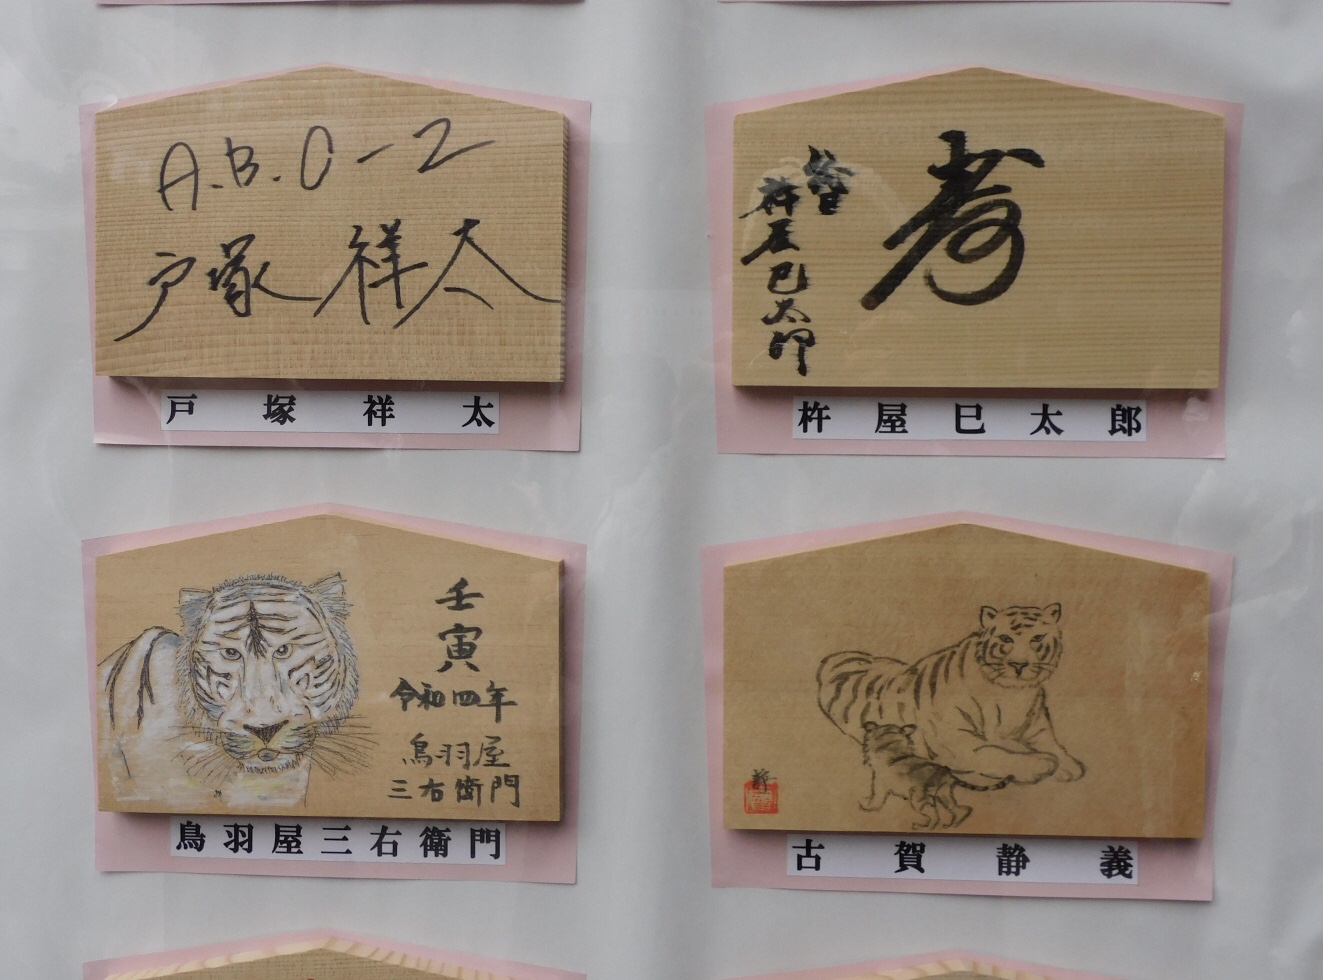 A.B.C-Z
戸塚祥太
戸塚祥太
寿
杵屋巳太郎
杵屋巳太郎
壬
寅
令和四年
鳥羽屋
三右衛門
鳥羽屋三右衛門
静
古賀静義